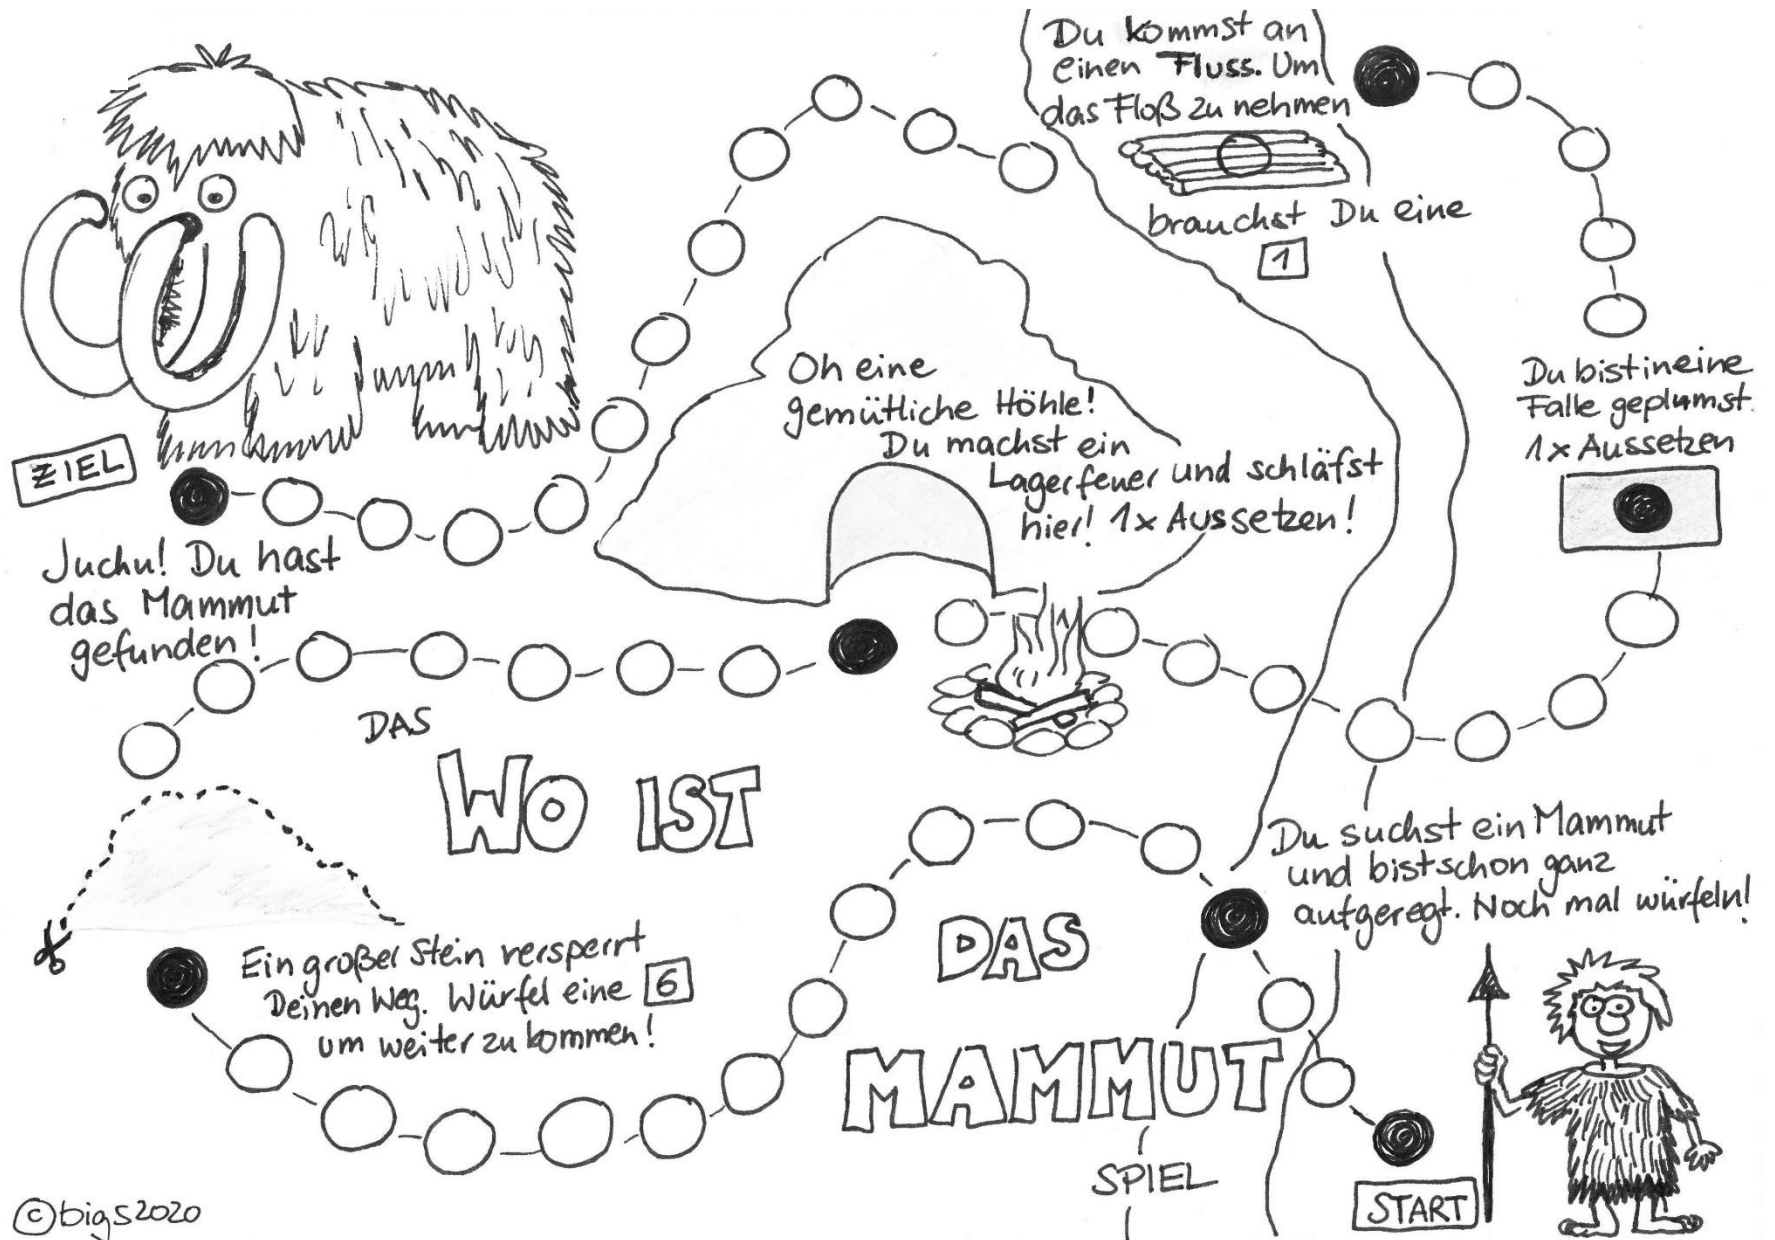 Du kommst an
einen Fluss. Um
das Floß zu nehmen
brauchst Du eine
1
Oh eine
gemütliche Höhle!
Du machst ein
Lagerfeuer und schläfst
hier! 1x Aussetzen!
Du bist in eine
Falle geplumst.
1x Aussetzen
ZIEL
Juchu! Du hast
das Mammut
gefunden!
DAS
WO IST
DAS
MAMMUT
SPIEL
Du suchst ein Mammut
und bist schon ganz
aufgeregt. Noch mal würfeln!
Ein großer Stein versperrt
Deinen Weg. Würfel eine 6
um weiter zu kommen!
START
©bigs2020